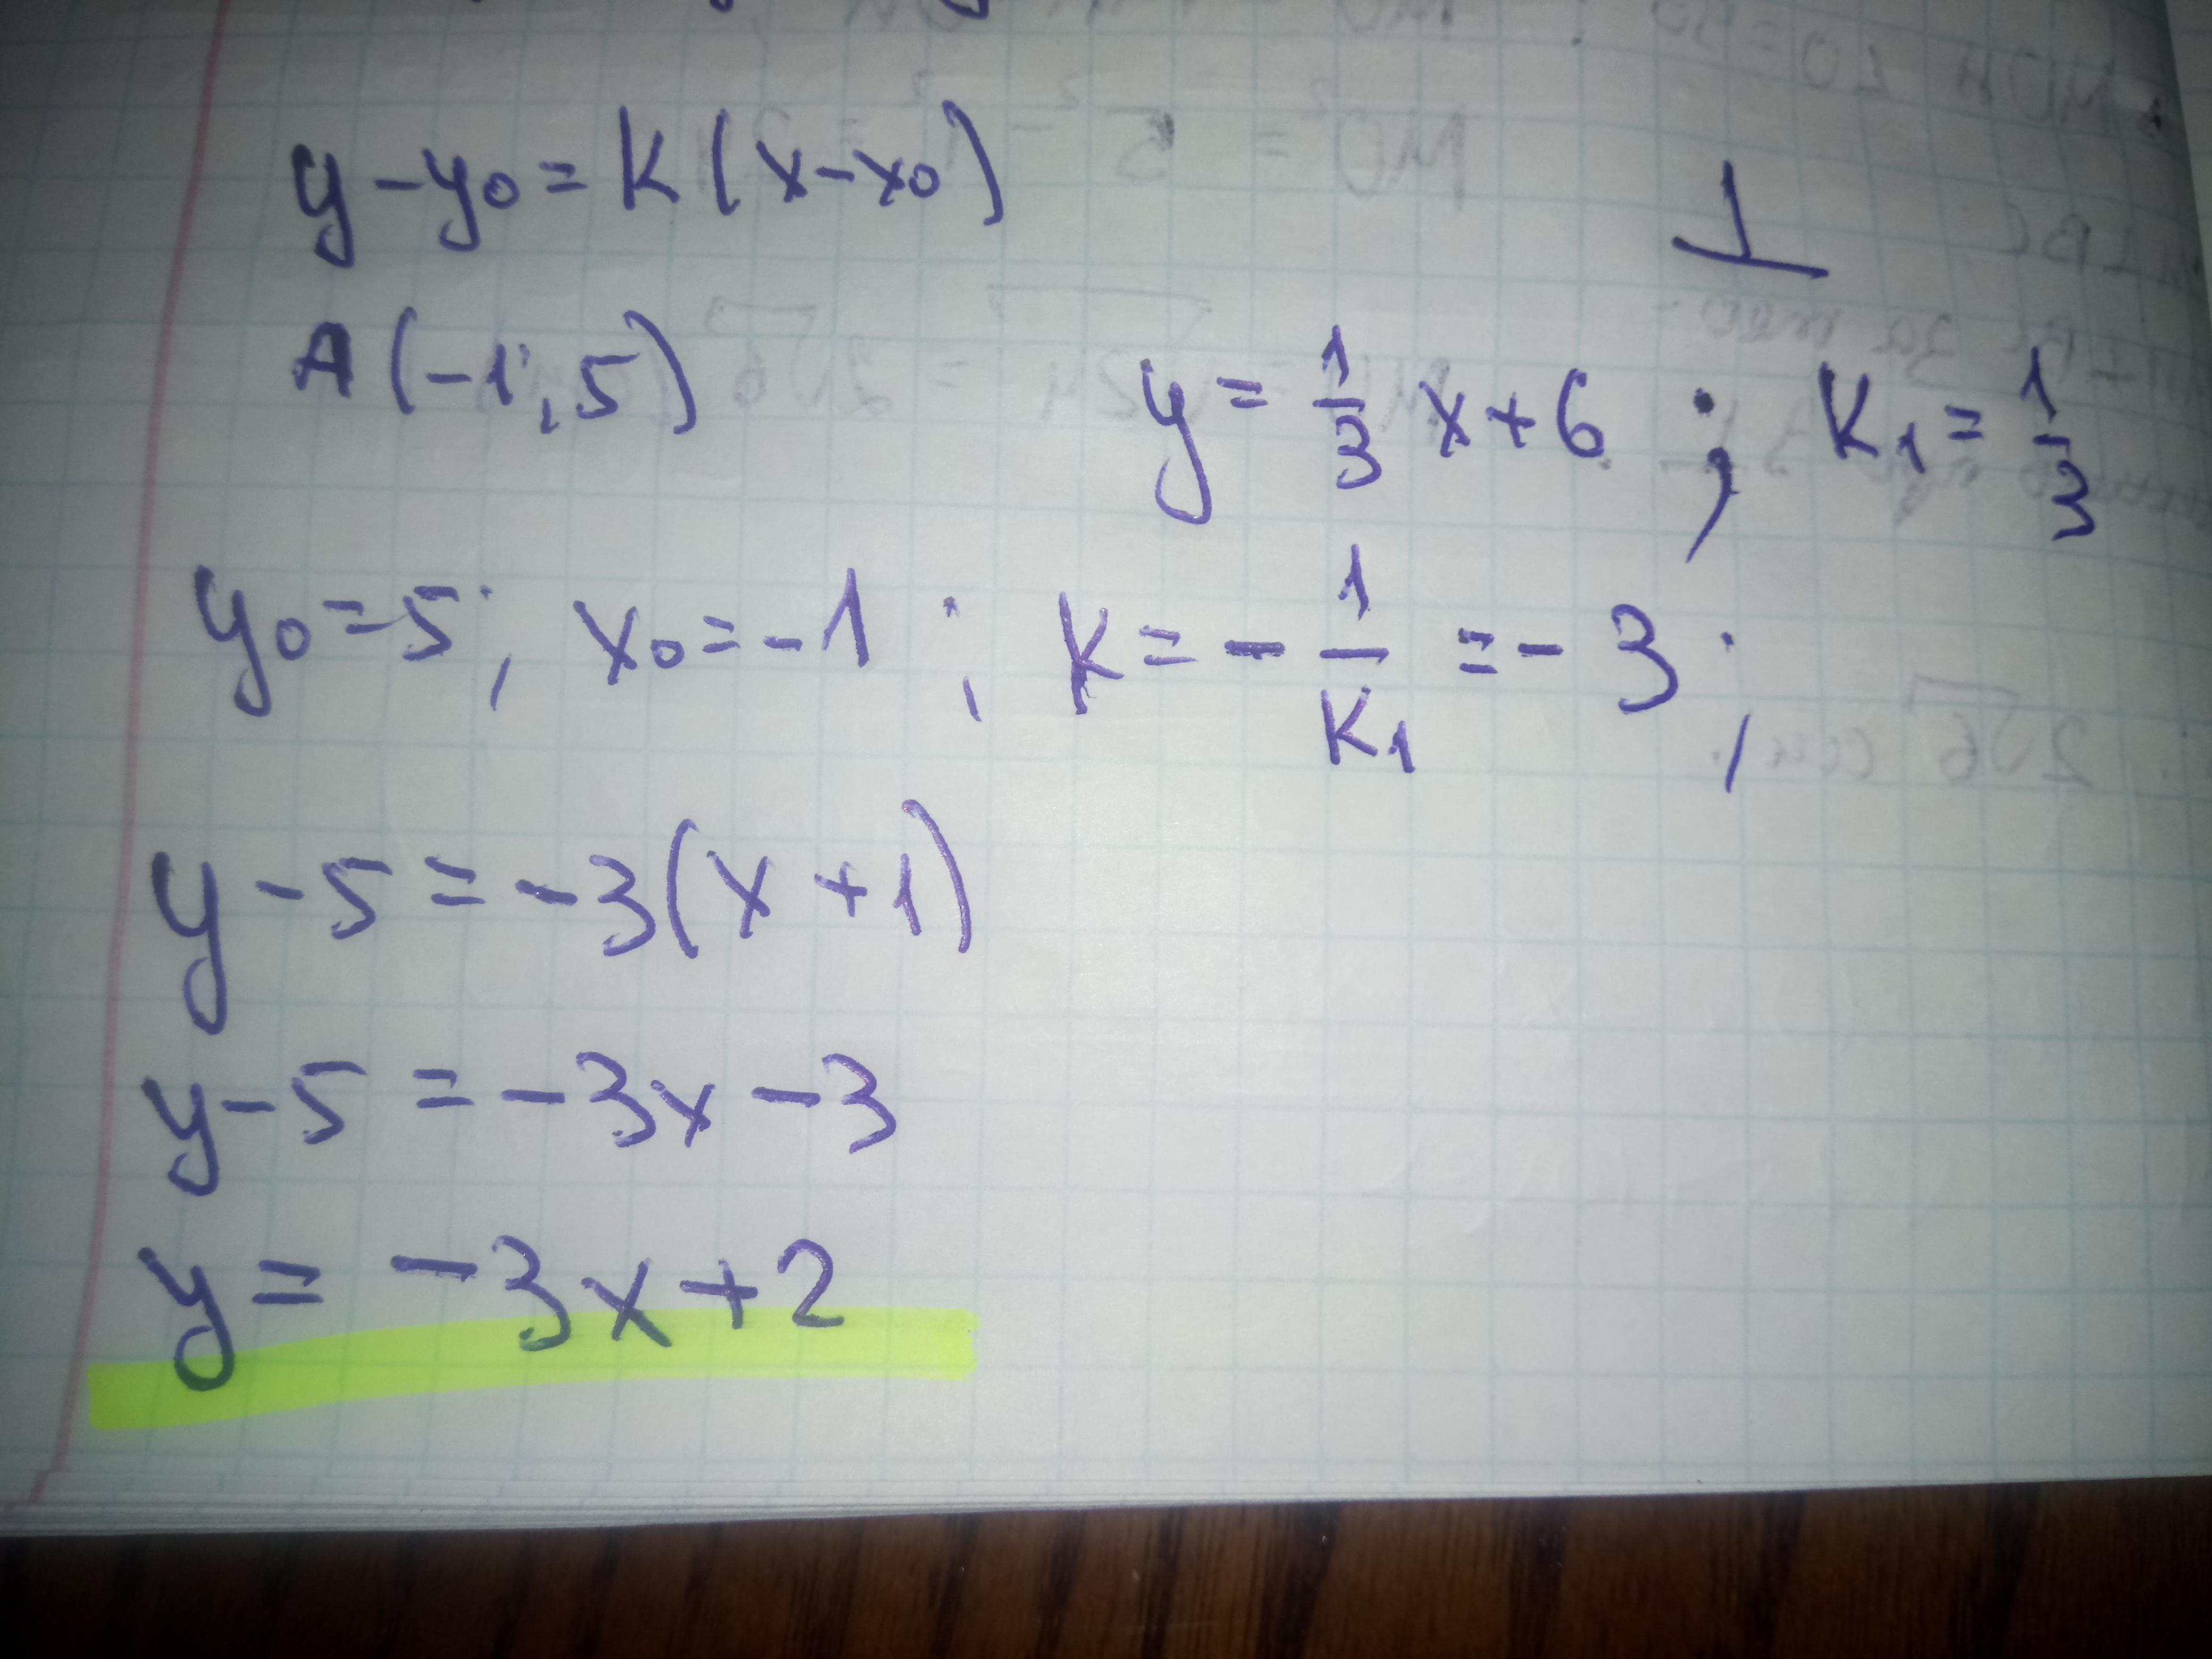 y - y₀ = k(x - x₀)
⊥
A(-1; 5)
y = 1/3 x + 6 ; k₁ = 1/3
y₀ = 5; x₀ = -1 ; k = - 1/k₁ = -3 ;
y - 5 = -3(x + 1)
y - 5 = -3x - 3
y = -3x + 2